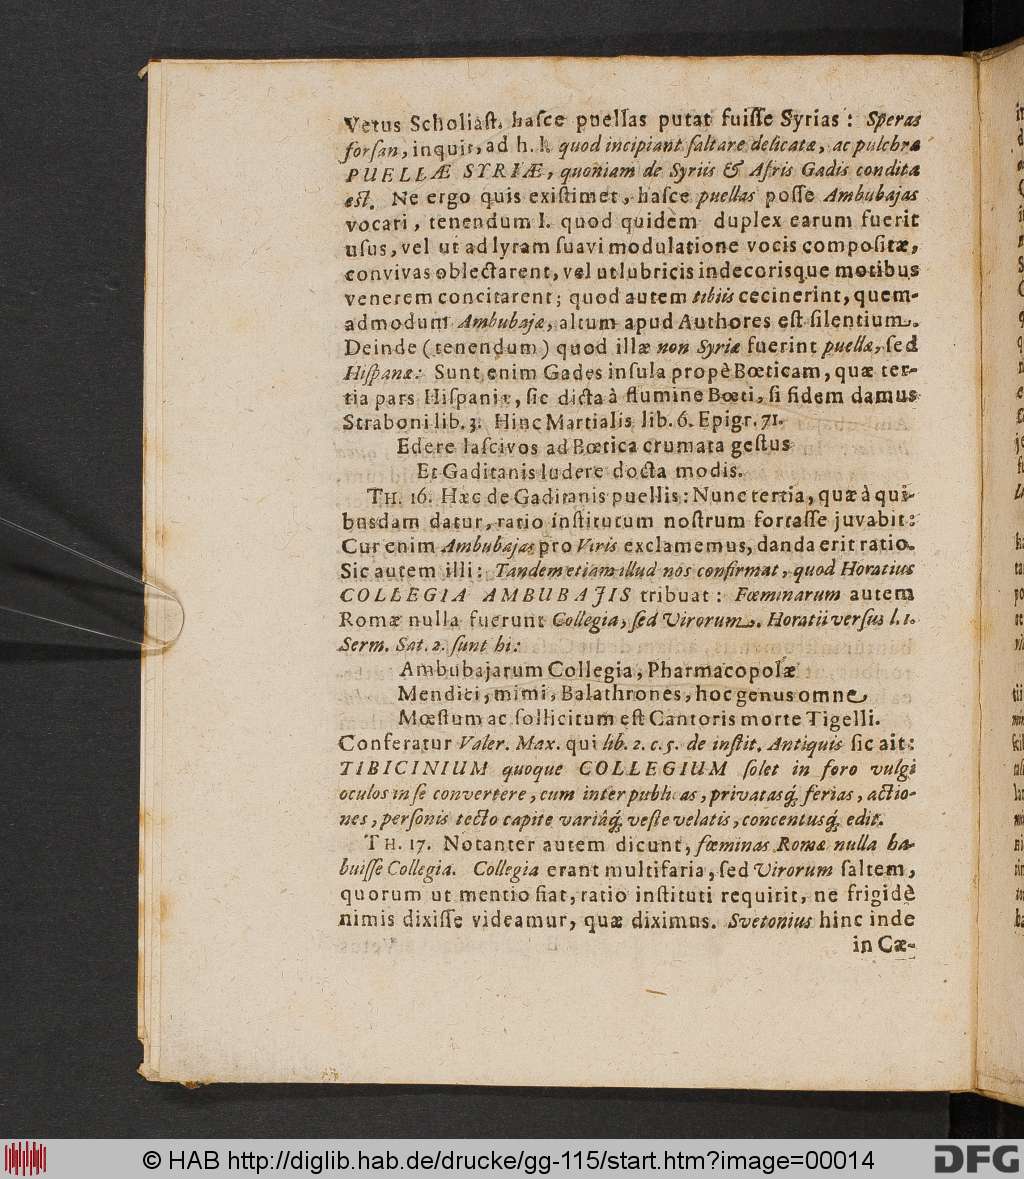 Vetus Scholiast. hasce puellas putat fuiſſe Syrias: Speras
forſan, inquit, ad h. l. quod incipiant ſaltare delicatæ, ac pulchræ
PUELLÆ SYRIÆ, quoniam de Syriis & Afris Gadis condita
eſt. Ne ergo quis exiſtimet, haſce puellas poſſe Ambubajas
vocari, tenendum I. quod quidem duplex earum fuerit
uſus, vel ut ad lyram ſuavi modulatione vocis compoſitæ,
convivas oblectarent, vel ut lubricis indecorisque motibus
venerem concitarent; quod autem tibiis cecinerint, quem-
admodum Ambubajæ, altum apud Authores eſt ſilentium.
Deinde (tenendum) quod illæ non Syriæ fuerint puellæ, ſed
Hiſpanæ: Sunt enim Gades inſula propè Bœticam, quæ ter-
tia pars Hiſpaniæ, ſic dicta à flumine Bœti, ſi fidem damus
Straboni lib. 3. Hinc Martialis lib. 6. Epigr. 71.
Edere laſcivos ad Bœtica crumata geſtus
Et Gaditanis ludere docta modis.
TH. 16. Hæc de Gaditanis puellis: Nunc tertia, quæ à qui-
busdam datur, ratio inſtitutum noſtrum fortaſſe juvabit:
Cur enim Ambubajas pro Viris exclamemus, danda erit ratio.
Sic autem illi: Tandem etiam illud nos confirmat, quod Horatius
COLLEGIA AMBUBAJIS tribuat: Fœminarum autem
Romæ nulla fuerunt Collegia, ſed Virorum. Horatii verſus l. 1.
Serm. Sat. 2. ſunt hi:
Ambubajarum Collegia, Pharmacopolæ
Mendici, mimi, Balathrones, hoc genus omne
Mœſtum ac ſollicitum eſt Cantoris morte Tigelli.
Conferatur Valer. Max. qui lib. 2. c. 5. de inſtit. Antiquis ſic ait:
TIBICINIUM quoque COLLEGIUM ſolet in foro vulgi
oculos in ſe convertere, cum inter publicas, privatasq́; ferias, actio-
nes, perſonis tecto capite variâq́; veſte velatis, concentusq́; edit.
TH. 17. Notanter autem dicunt, fœminas Romæ nulla ha-
buiſſe Collegia. Collegia erant multifaria, ſed Virorum ſaltem,
quorum ut mentio fiat, ratio inſtituti requirit, ne frigidè
nimis dixiſſe videamur, quæ diximus. Svetonius hinc inde
in Cæ-
© HAB http://diglib.hab.de/drucke/gg-115/start.htm?image=00014
DFG